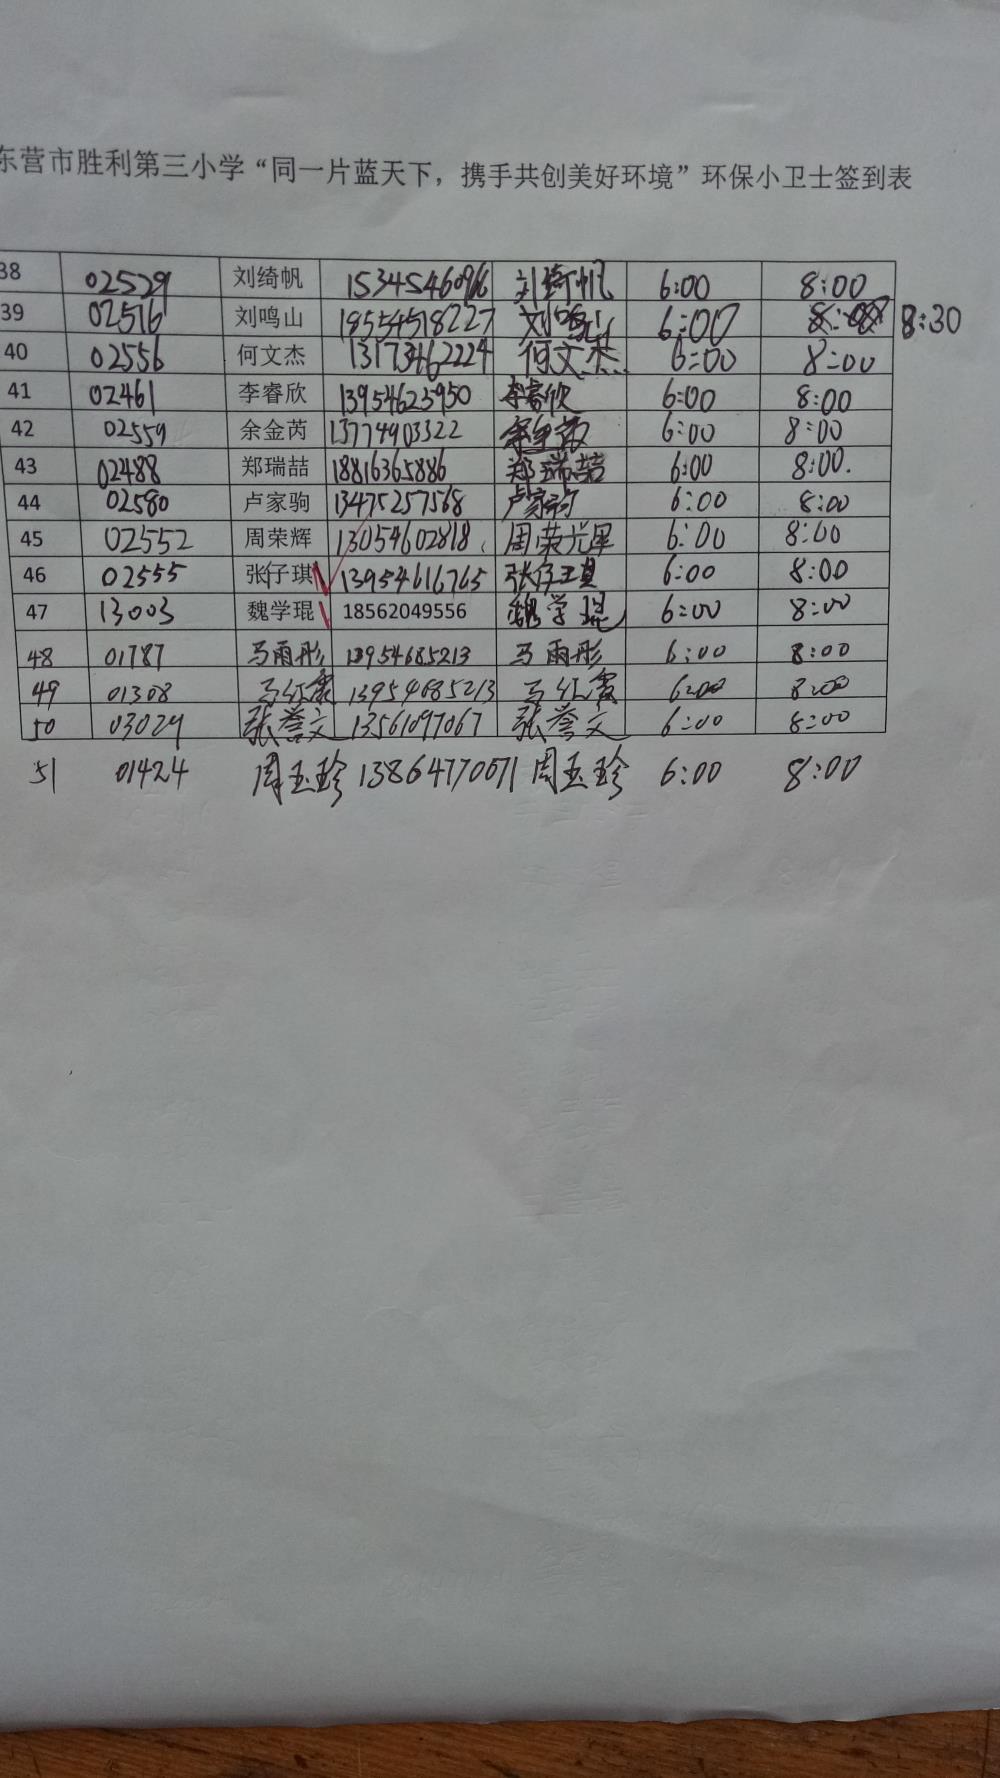 东营市胜利第三小学“同一片蓝天下，携手共创美好环境”环保小卫士签到表
38 02529 刘绮帆 15345460966 刘绮帆 6:00 8:00
39 02516 刘鸣山 18554518227 刘鸣山 6:00 8:30
40 02556 何文杰 13173462224 何文杰 6:00 8:00
41 02461 李睿欣 13954625950 李睿欣 6:00 8:00
42 02559 余金芮 13774903322 余金芮 6:00 8:00
43 02488 郑瑞喆 18816365886 郑瑞喆 6:00 8:00.
44 02580 卢家驹 13475257568 卢家驹 6:00 8:00
45 02552 周荣辉 13054602818 周荣辉 6:00 8:00
46 02555 张仔琪 13954616765 张仔琪 6:00 8:00
47 13003 魏学琨 18562049556 魏学琨 6:00 8:00
48 01787 马雨彤 13954685213 马雨彤 6:00 8:00
49 01308 马红霞 13954685213 马红霞 6:00 8:00
50 03029 张誉文 13561097067 张誉文 6:00 8:00
51 01424 周玉珍 13864770071 周玉珍 6:00 8:00